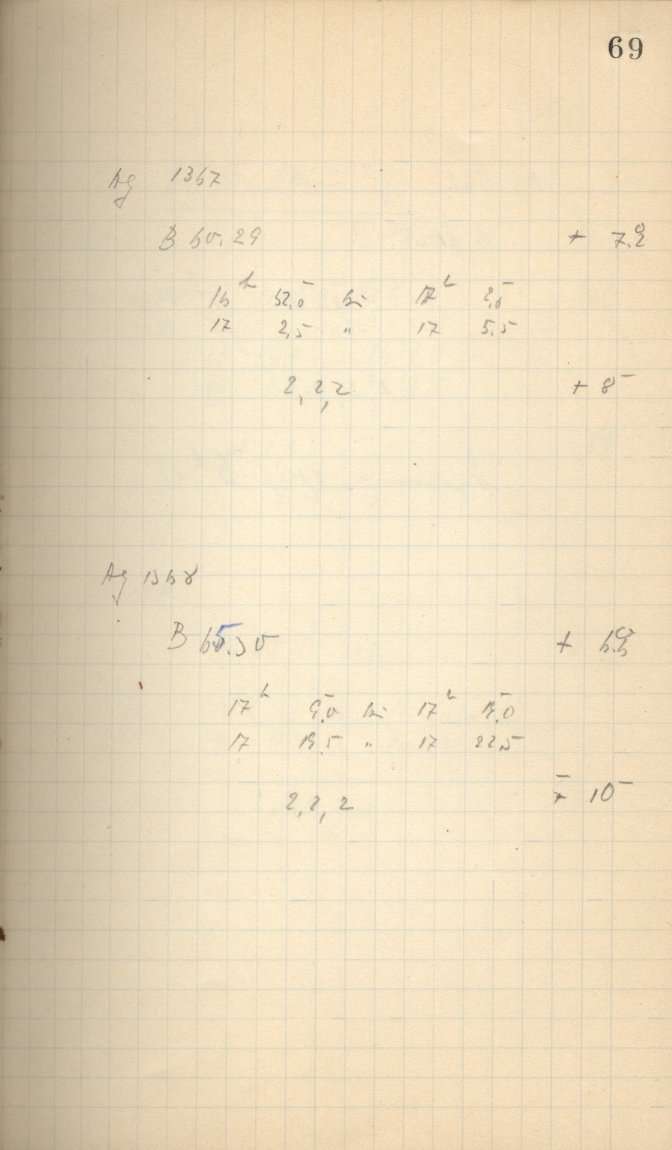 69
Ag 1367
B 60.29 + 7.°2
16ʰ 52,0ᵐ bis 17ʰ 2,0ᵐ
17 2,5 " 17 5,5
2, 2, 2 + 8ᵐ
Ag 1368
B 65.30 + 6.°6
17ʰ 9,0ᵐ bis 17ʰ 19,0ᵐ
17 19,5 " 17 22,5
2, 2, 2 ∓ 10ᵐ